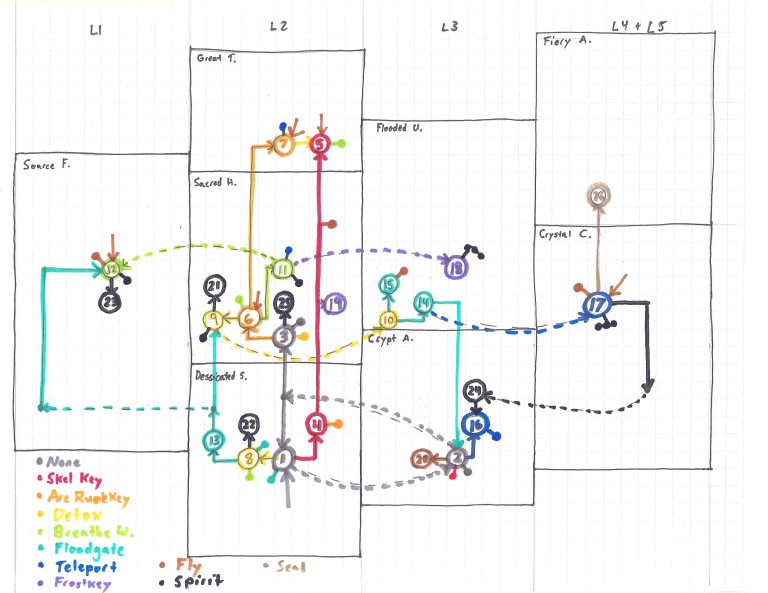 L1
L2
L3
L4 + L5
Great T.
Fiery A.
Flooded U.
Source F.
Sacred H.
Crystal C.
Crypt A.
Dessicated S.
7
5
12
11
18
23
21
9
6
25
3
19
15
10
14
17
13
22
8
1
4
24
16
20
2
None
Skel Key
Arc Rustkey
Detox
Breathe W.
Floodgate
Teleport
Frostkey
Fly
Spirit
Seal